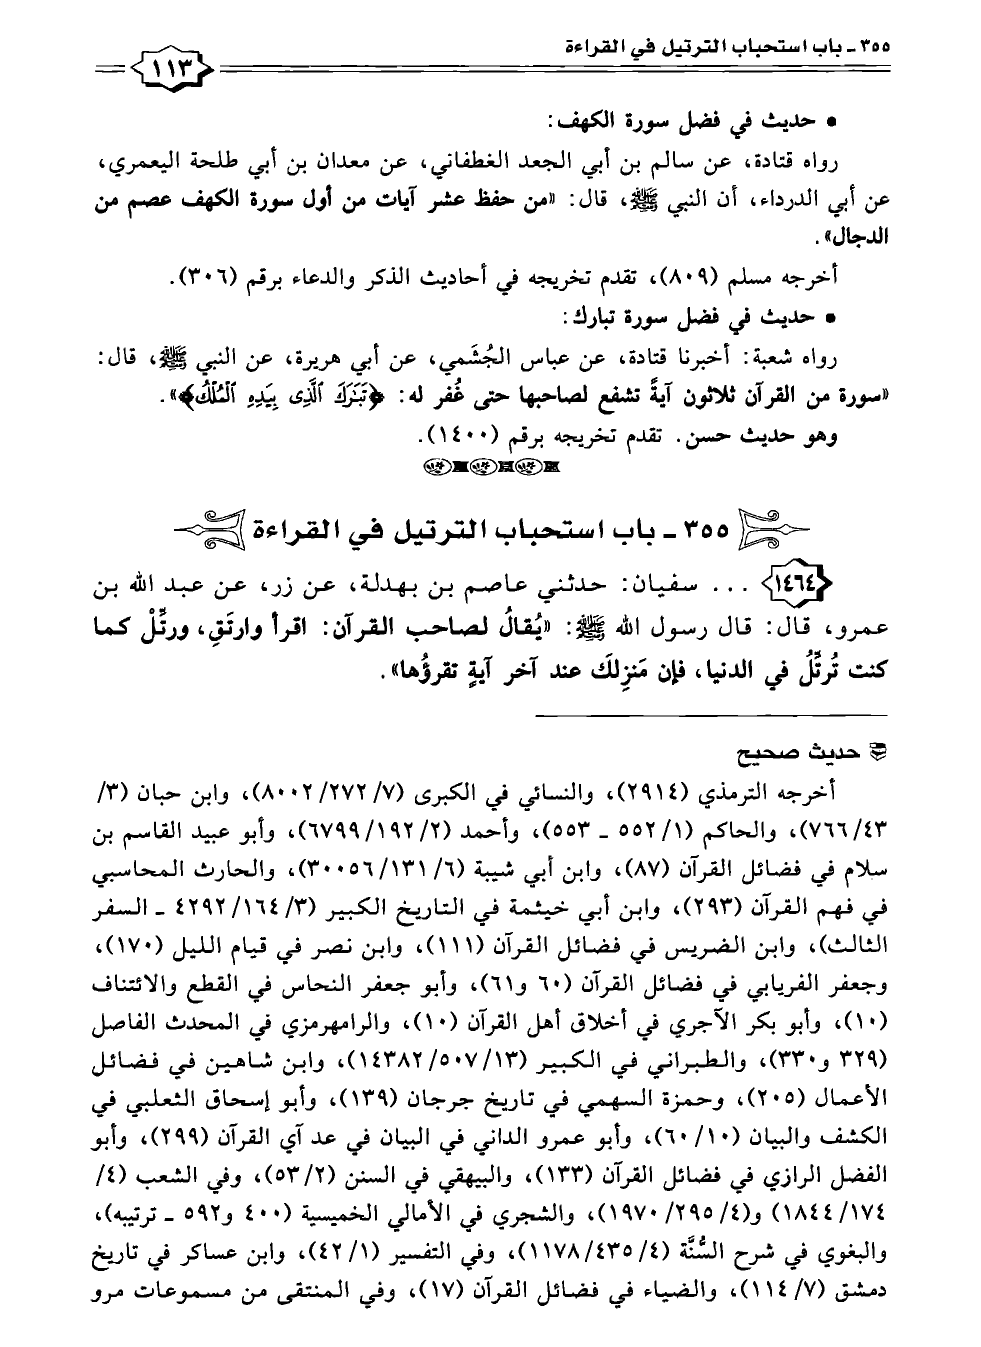 ٣٥٥ ـ باب استحباب الترتيل في القراءة
١١٣
• حديث في فضل سورة الكهف:
رواه قتادة، عن سالم بن أبي الجعد الغطفاني، عن معدان بن أبي طلحة اليعمري،
عن أبي الدرداء، أن النبي ﷺ، قال: «من حفظ عشر آيات من أول سورة الكهف عصم من
الدجال».
أخرجه مسلم (٨٠٩)، تقدم تخريجه في أحاديث الذكر والدعاء برقم (٣٠٦).
• حديث في فضل سورة تبارك:
رواه شعبة: أخبرنا قتادة، عن عباس الجُشَمي، عن أبي هريرة، عن النبي ﷺ، قال:
«سورة من القرآن ثلاثون آيةً تشفع لصاحبها حتى غُفر له: ﴿تَبَٰرَكَ ٱلَّذِى بِيَدِهِ ٱلْمُلْكُ﴾».
وهو حديث حسن. تقدم تخريجه برقم (١٤٠٠).
٣٥٥ ـ باب استحباب الترتيل في القراءة
١٤٦٤ ... سفيان: حدثني عاصم بن بهدلة، عن زر، عن عبد الله بن
عمرو، قال: قال رسول الله ﷺ: «يُقالُ لصاحب القرآن: اقرأ وارتَقِ، ورتِّلْ كما
كنت تُرتِّلُ في الدنيا، فإن مَنزِلكَ عند آخر آيةٍ تقرؤُها».
حديث صحيح
أخرجه الترمذي (٢٩١٤)، والنسائي في الكبرى (٧/ ٢٧٢/ ٨٠٠٢)، وابن حبان (٣/
٤٣/ ٧٦٦)، والحاكم (١/ ٥٥٢ ـ ٥٥٣)، وأحمد (٢/ ١٩٢/ ٦٧٩٩)، وأبو عبيد القاسم بن
سلام في فضائل القرآن (٨٧)، وابن أبي شيبة (٦/ ١٣١/ ٣٠٠٥٦)، والحارث المحاسبي
في فهم القرآن (٢٩٣)، وابن أبي خيثمة في التاريخ الكبير (٣/ ١٦٤/ ٤٢٩٢ ـ السفر
الثالث)، وابن الضريس في فضائل القرآن (١١١)، وابن نصر في قيام الليل (١٧٠)،
وجعفر الفريابي في فضائل القرآن (٦٠ و٦١)، وأبو جعفر النحاس في القطع والائتناف
(١٠)، وأبو بكر الآجري في أخلاق أهل القرآن (١٠)، والرامهرمزي في المحدث الفاصل
(٣٢٩ و٣٣٠)، والطبراني في الكبير (١٣/ ٥٠٧/ ١٤٣٨٢)، وابن شاهين في فضائل
الأعمال (٢٠٥)، وحمزة السهمي في تاريخ جرجان (١٣٩)، وأبو إسحاق الثعلبي في
الكشف والبيان (١٠/ ٦٠)، وأبو عمرو الداني في البيان في عد آي القرآن (٢٩٩)، وأبو
الفضل الرازي في فضائل القرآن (١٣٣)، والبيهقي في السنن (٢/ ٥٣)، وفي الشعب (٤/
١٧٤/ ١٨٤٤) و(٤/ ٢٩٥/ ١٩٧٠)، والشجري في الأمالي الخميسية (٤٠٠ و٥٩٢ ـ ترتيبه)،
والبغوي في شرح السُّنَّة (٤/ ٤٣٥/ ١١٧٨)، وفي التفسير (١/ ٤٢)، وابن عساكر في تاريخ
دمشق (٧/ ١١٤)، والضياء في فضائل القرآن (١٧)، وفي المنتقى من مسموعات مرو